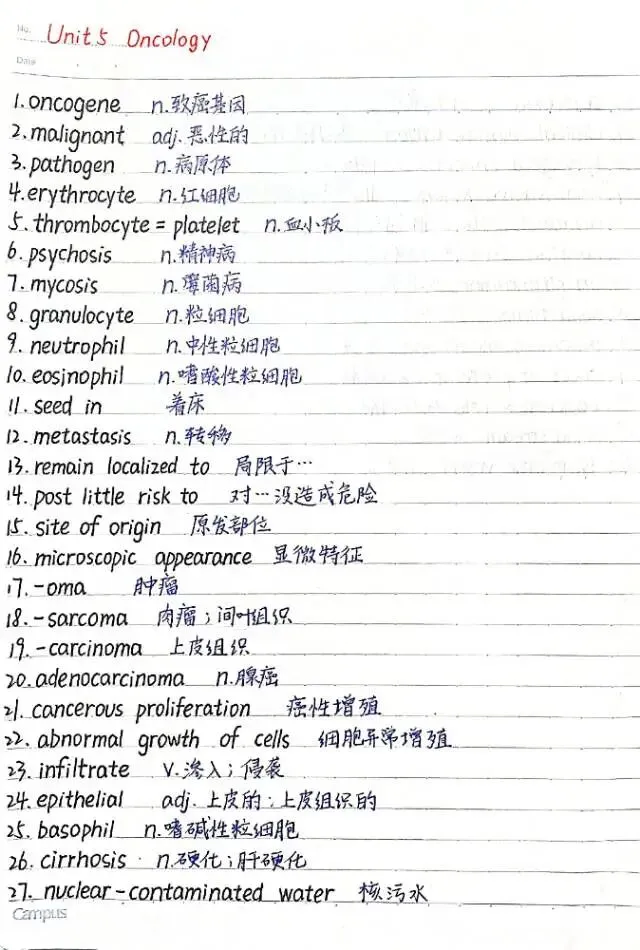 No.
Unit 5 Oncology
Date
1. oncogene n. 致癌基因
2. malignant adj. 恶性的
3. pathogen n. 病原体
4. erythrocyte n. 红细胞
5. thrombocyte = platelet n. 血小板
6. psychosis n. 精神病
7. mycosis n. 霉菌病
8. granulocyte n. 粒细胞
9. neutrophil n. 中性粒细胞
10. eosinophil n. 嗜酸性粒细胞
11. seed in 着床
12. metastasis n. 转移
13. remain localized to 局限于…
14. post little risk to 对…没造成危险
15. site of origin 原发部位
16. microscopic appearance 显微特征
17. -oma 肿瘤
18. -sarcoma 肉瘤；间叶组织
19. -carcinoma 上皮组织
20. adenocarcinoma n. 腺癌
21. cancerous proliferation 癌性增殖
22. abnormal growth of cells 细胞异常增殖
23. infiltrate v. 渗入；侵袭
24. epithelial adj. 上皮的；上皮组织的
25. basophil n. 嗜碱性粒细胞
26. cirrhosis n. 硬化；肝硬化
27. nuclear-contaminated water 核污水
Campus